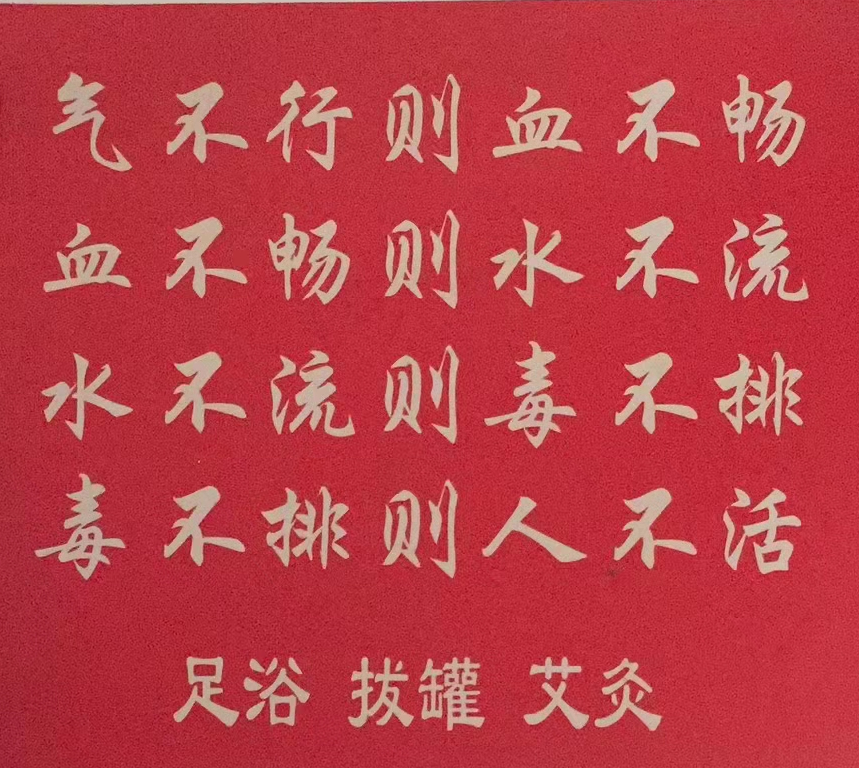 气不行则血不畅
血不畅则水不流
水不流则毒不排
毒不排则人不活
足浴 拔罐 艾灸